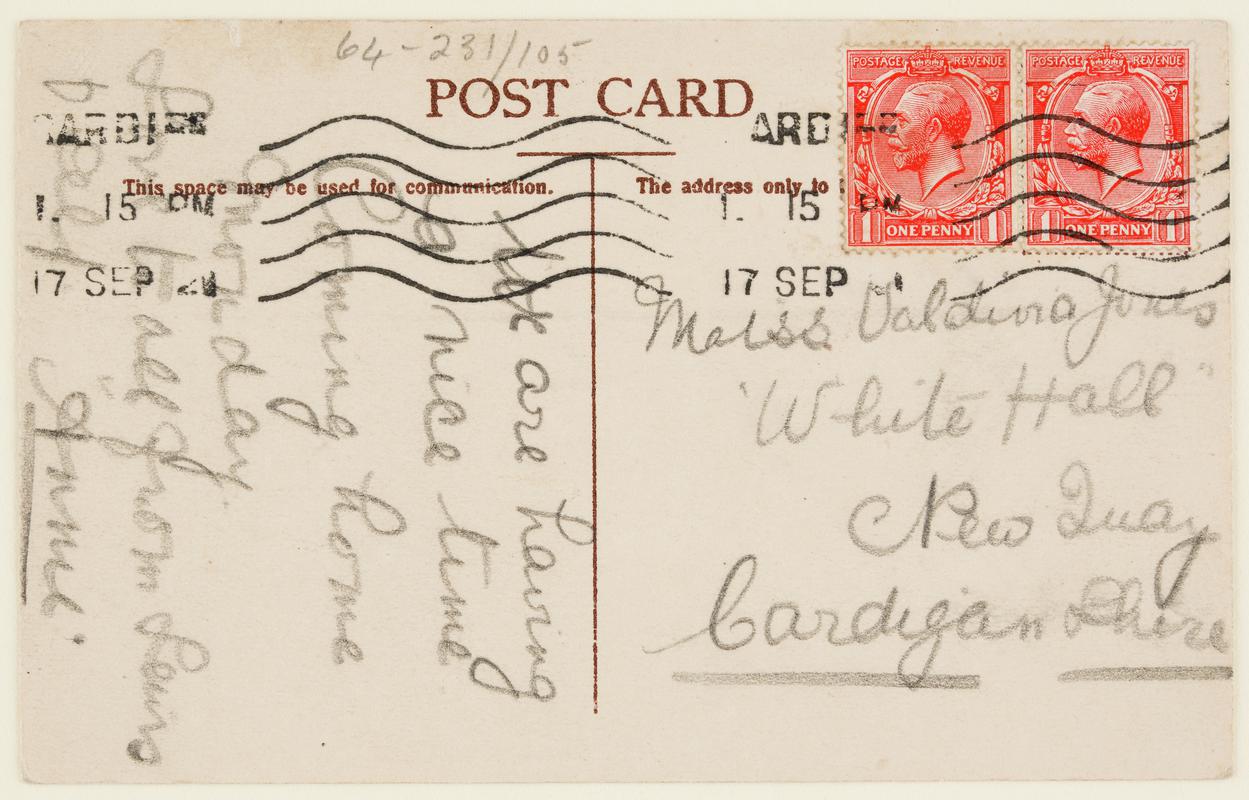 64-231/105
POST CARD
CARDIFF
1. 15 PM
17 SEP 21
ARDIFF
1. 15 PM
17 SEP 1
This space may be used for communication.
The address only to
POSTAGE REVENUE
ONE PENNY
1 1
POSTAGE REVENUE
ONE PENNY
1 1
We are having
a nice time
Coming home
on day
to all from Lewis
Self
Ynne.
Miss Valdivia Jones
"White Hall"
New Quay
Cardigan Shire